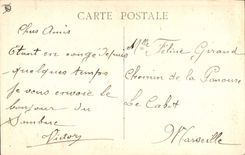 CARTE POSTALE
Chers Amis
Etant en congé depuis
quelques temps
je vous envoie le
bonjour du
Victor
Mlle Féline Giraud
Chemin de la Panouse
Le Cabot
Marseille